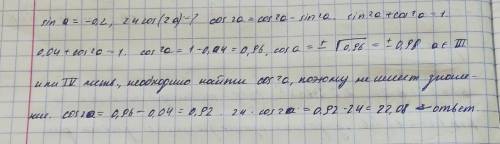 sin a = -0,2, 24 cos(2a) -? cos2a = cos²a - sin²a. sin²a + cos²a = 1
0,04 + cos²a = 1. cos²a = 1 - 0,04 = 0,96, cos a = ± √0,96 = ± 0,98 a ∈ III
или IV четв., необходимо найти cos²a, поэтому не имеет значе-
ния. cos2a = 0,96 - 0,04 = 0,92. 24 · cos2a = 0,92 · 24 = 22,08 - ответ.